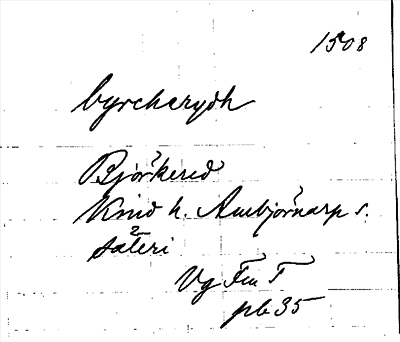 1508
byrcherydh
Björkered
Knud h. Ambjörnarp s.
säteri
Vg Fm T
pb 35